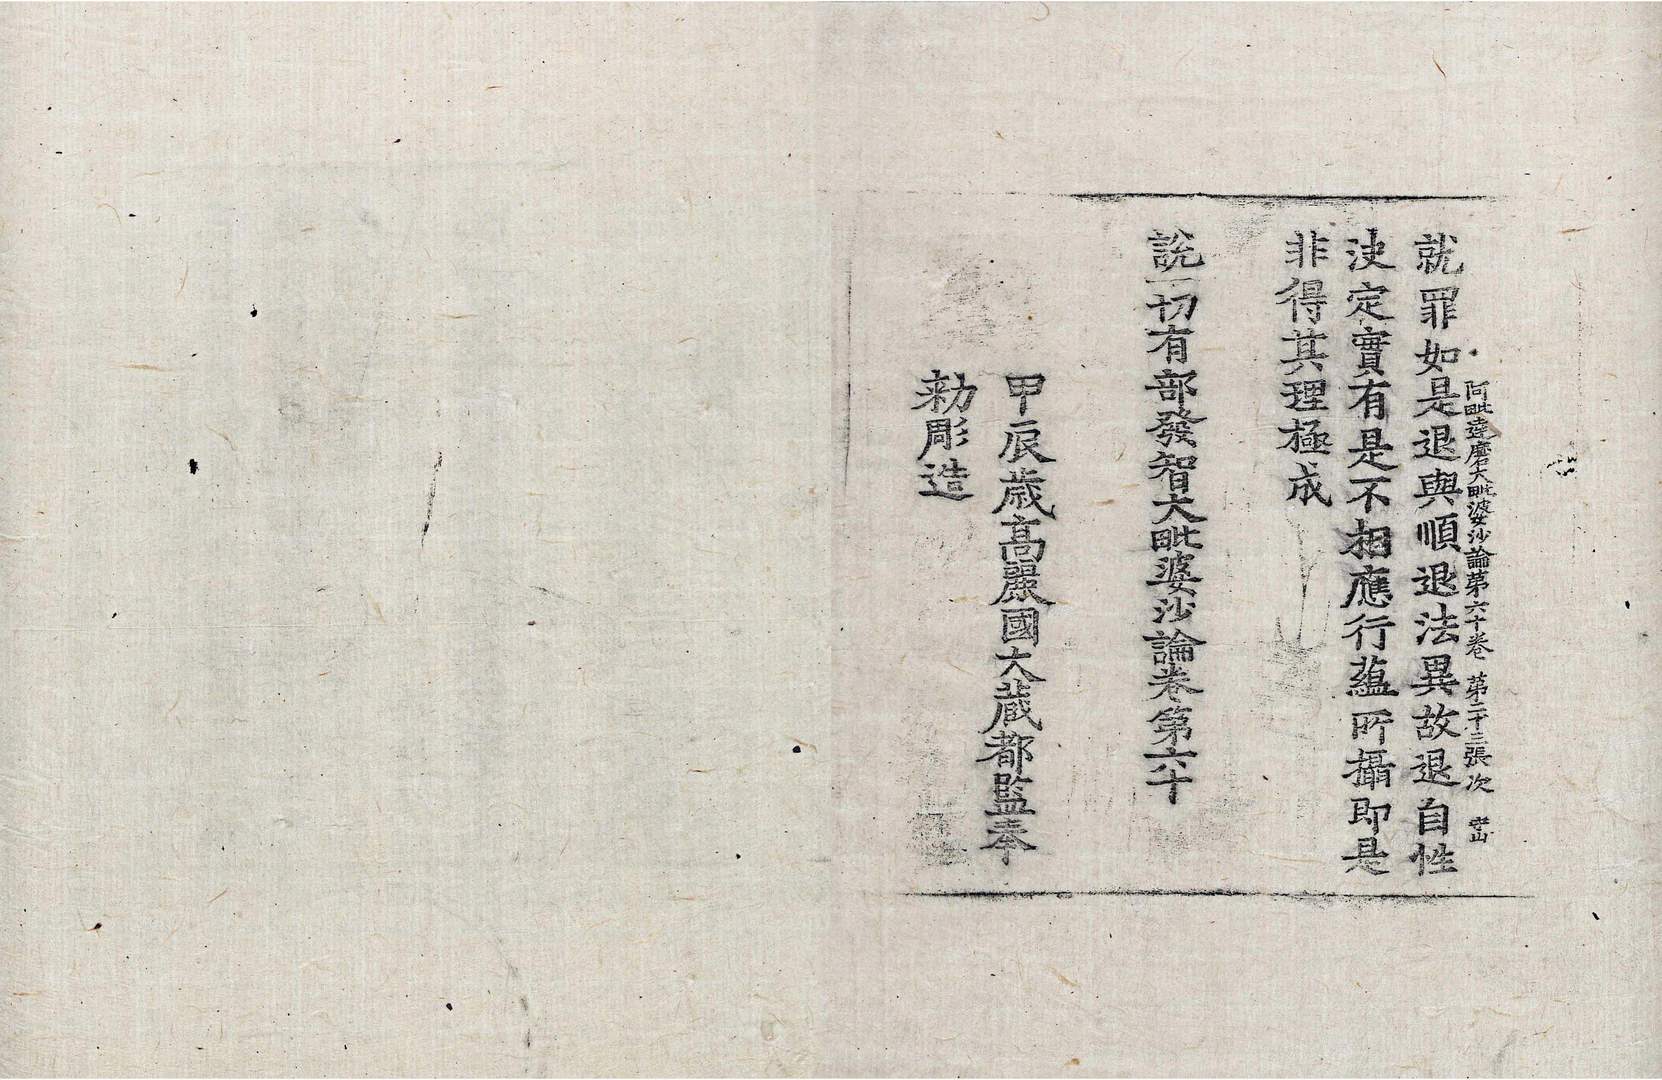 阿毗達磨大毗婆沙論第六十卷 第二十三張 次
就罪如是退與順退法異故退自性
決定實有是不相應行蘊所攝即是
非得其理極成
說一切有部發智大毗婆沙論卷第六十
甲辰歲高麗國大藏都監奉
勑彫造